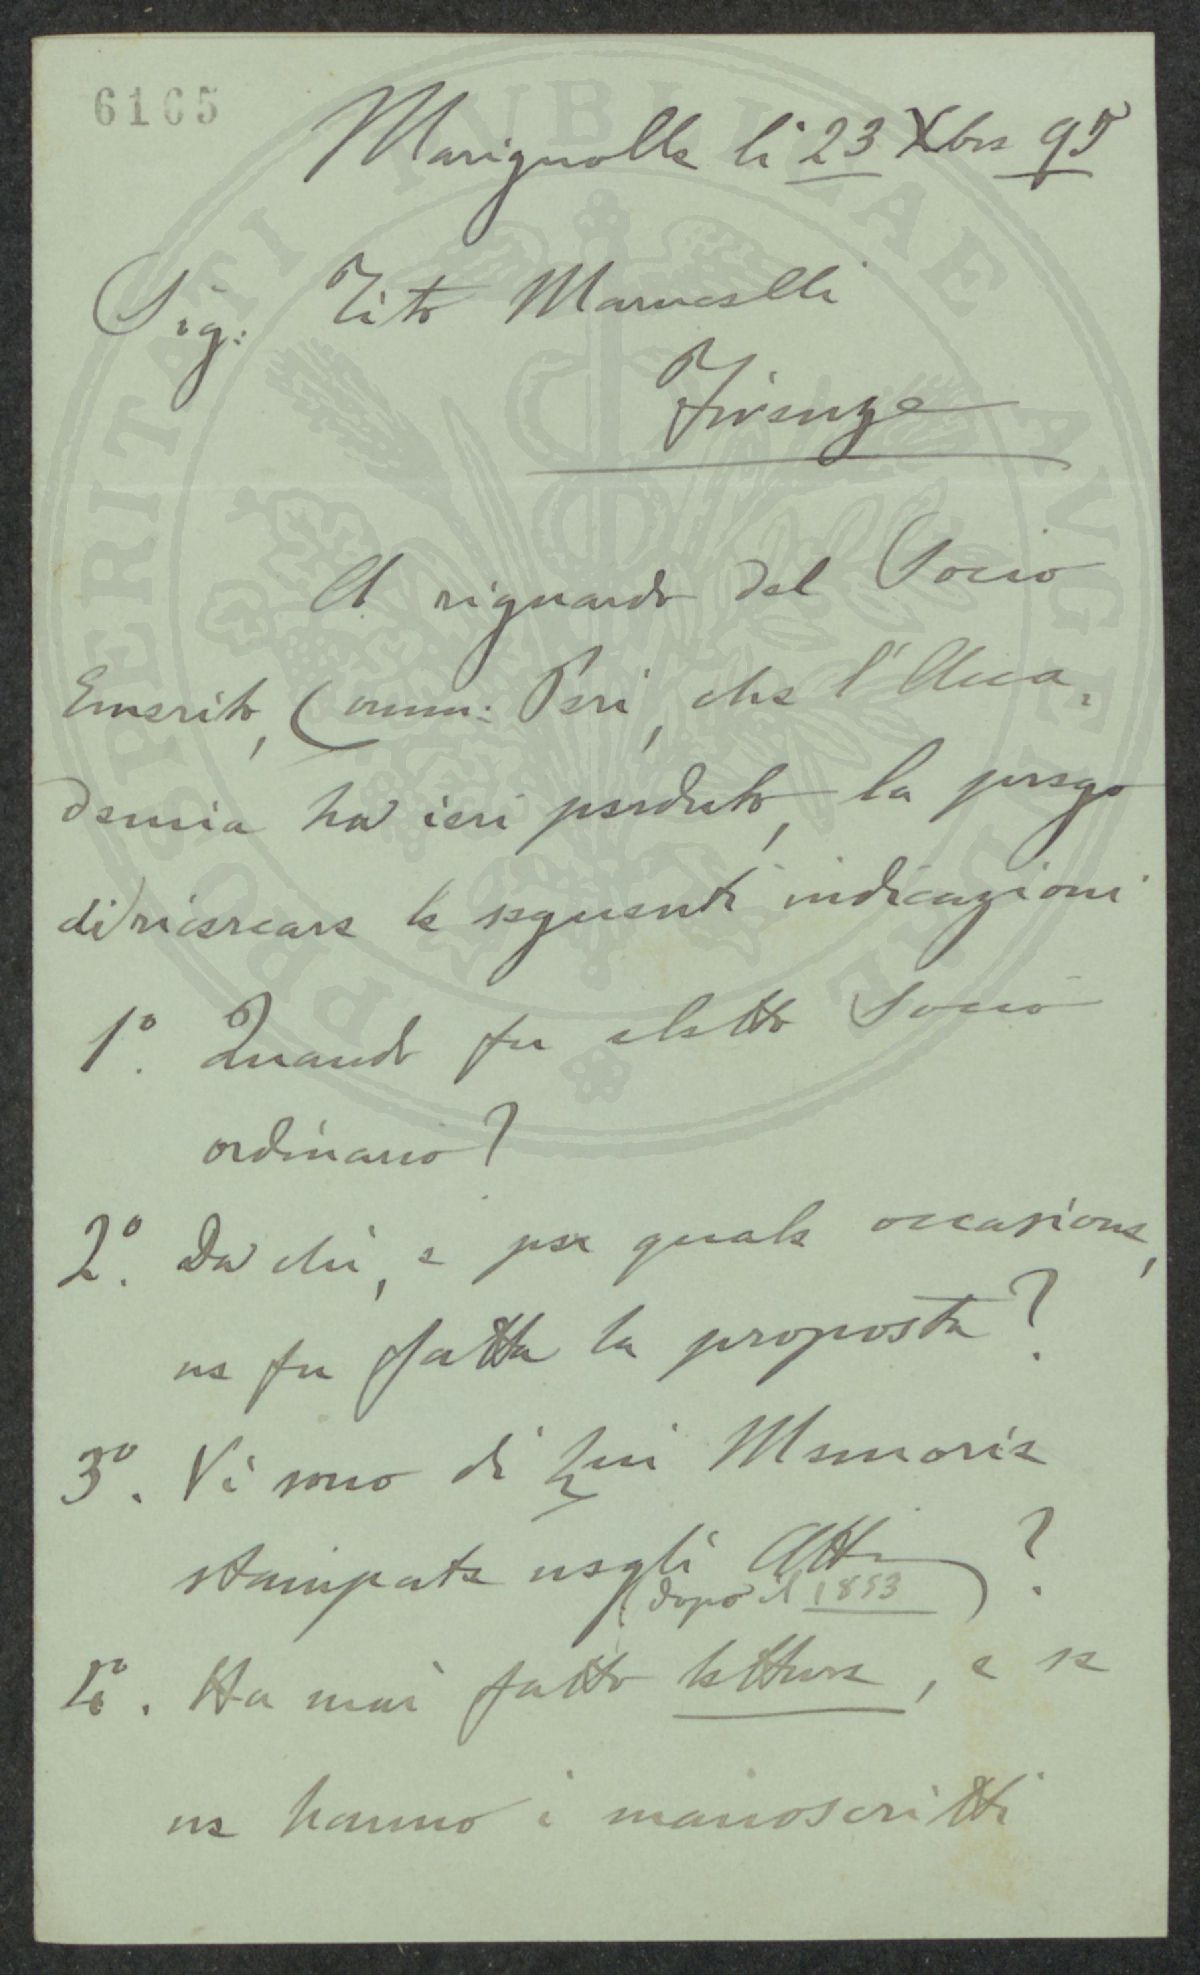 6165
Marignolle li 23 Xbre 95
Sig: Tito Marucelli
Firenze
A riguardo del Socio
Emerito, Comm: Peri, che l'Acca=
demia ha ieri perduto, la prego
di ricercare le seguenti indicazioni
1º. Quando fu eletto Socio
ordinario?
2º. Da chi, e per quale occasione,
ne fu fatta la proposta?
3º. Vi sono di Lui Memorie
stampate negli Atti ?
(dopo il 1853)
4º. Ha mai fatto letture, e se
ne hanno i manoscritti
PROSPERITATI PVBLICAE AVGENDAE